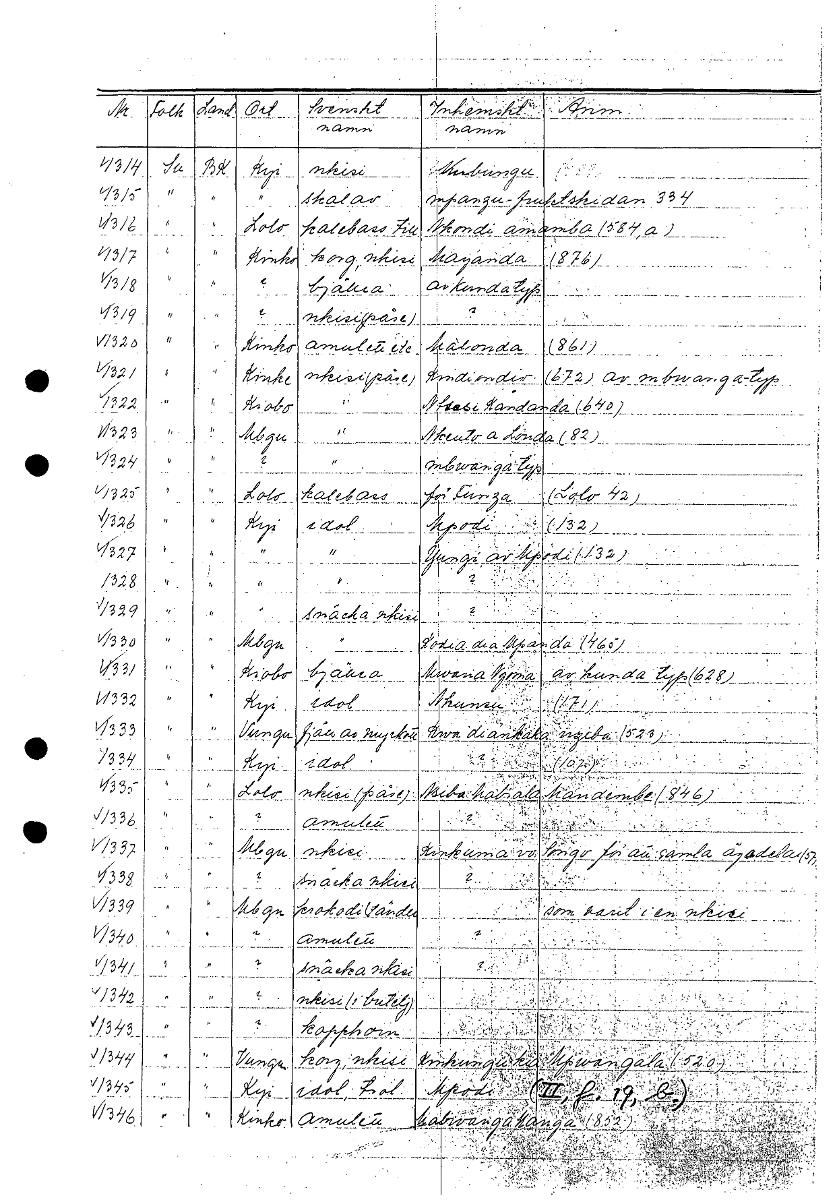 Nr Folk Land Ort Svenskt namn Inhemskt namn Anm
1314 Su BK Kyi nkisi Mubungu
1315 " " " skal av mpangu-fruktskidan 334
1316 " " Lolo kalebass, till Nkondi amamba (584, a)
1317 " " Kinko korg, nkisi Mayanda (876)
1318 " " ? bjällra av kunda typ
1319 " " ? nkisi (påse) ?
1320 " " Kinko amulett etc Mabonda (861)
1321 " " Kinke nkisi (påse) Kindiondio (672) av mbwanga-typ
1322 " " Kiobo " Ntsesi Kandanda (640)
1323 " " Mbgu " Nkento a Londa (82)
1324 " " ? " mbwanga typ
1325 " " Lolo kalebass för Funza (Lolo 42)
1326 " " Kyi idol Mpodi (132)
1327 " " " " Yungi av Mpodi (132)
1328 " " " " ?
1329 " " " snäcka nkisi ?
1330 " " Mbgu " Kodia dia Mpanda (465)
1331 " " Kiobo bjällra Mwana Ngoma av kunda typ (628)
1332 " " Kyi idol Nkunsu (171)
1333 " " Vungu Kwa diankaka ngiba (523)
1334 " " Kyi idol ?
1335 " " Lolo nkisi (påse) Nsiba Mabiala Mandembe (846)
1336 " " ? amulett ?
1337 " " Mbgu nkisi Kinkuma vo longo för att samla ägodelar
1338 " " ? snäcka nkisi ?
1339 " " Mbgu krokodiltänder som varit i en nkisi
1340 " " ? amulett ?
1341 " " ? snäcka nkisi ?
1342 " " ? nkisi (i butelj)
1343 " " ? kopphorn
1344 " " Vungu korg, nkisi Mpwangala (520)
1345 " " Kyi idol, Mpodi (II, f. 19, b.)
1346 " " Kinko amulett Mabwanga Kanga (852)